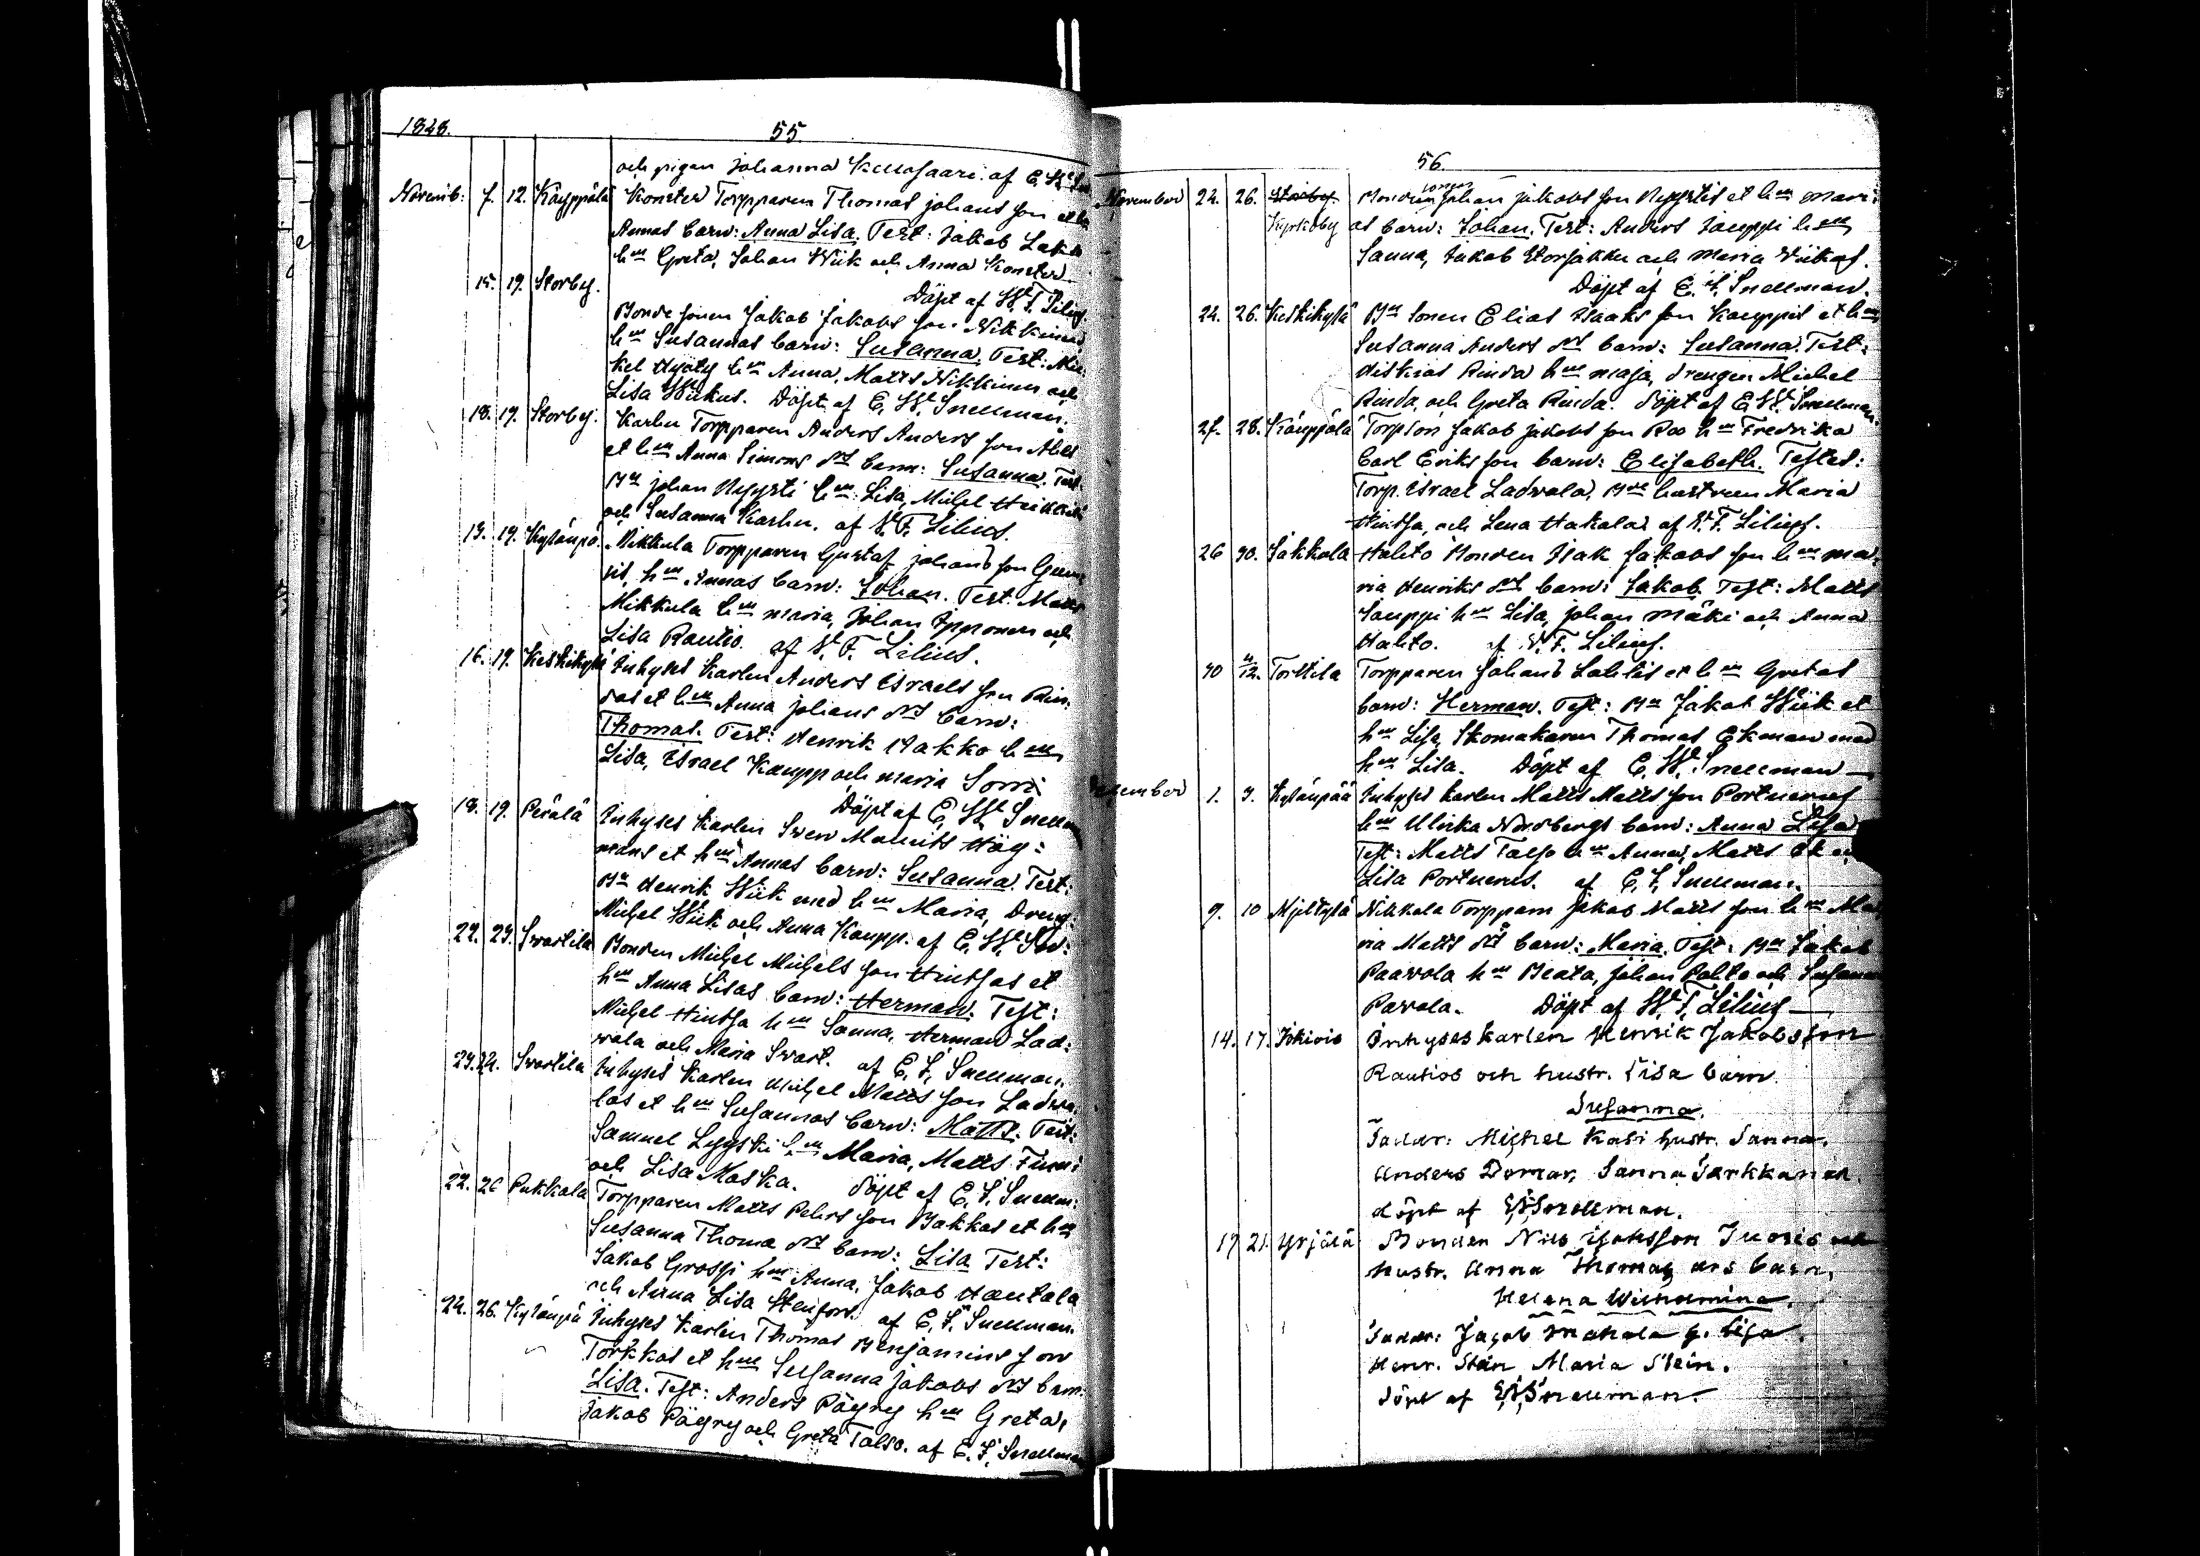 1828.
55.
och pigan Johanna af E.
Novemb: 7. 12. Käyppälä Konster Torpparen Thomas Johans son et h
Annas barn: Anna Lisa. Test: Jakob
hm Greta, Johan Wiik och Anna Konster
Döpt af W. F. Lilius
15. 19. Storby.
Bonde sonen Jakob Jakobs son Nikkines
hm Susannas barn: Susanna. Test: Mic
kel hm Anna, Matts Nikkinen och
Lisa Wiikus. Döpt af E. W. Snellman.
18. 19. Storby. Karhu Torpparen Anders Anders son
et hm Anna Simons dr barn: Susanna. Test:
Br Johan Nyysti hm Lisa, Michel
och Susanna Karhu. af W. F. Lilius.
13. 19. Kylänpä. Mikkula Torpparen Gustaf Johans son
hm Annas barn: Johan. Test: Matts
Mikkula hm Maria, Johan Ypponen och
Lisa Rautio. af W. F. Lilius.
16. 19. Keskikylä Inhyses Karlen Anders Israels son Rin
das et hm Anna Johans dr barn:
Thomas. Test: Henrik Hakko hm
Lisa, Israel Kaupp och Maria Sorri
Döpt af E. W. Snellm
18. 19. Perälä Inhyses Karlen Swen Maurits Hög:
mans et hm Annas barn: Susanna. Test:
Br Henrik Wiik med hm Maria, Dreng:
Michel Wiik och Anna Kaupp. af E. W.
22. 23. Swartila Bonden Michel Michels son Hintsas et
hm Anna Lisas barn: Herman. Test:
Michel Hintsa hm Sanna, Herman Lad:
wala och Maria Swart. af E. W. Snellman.
23. 24. Swartila Inhyses Karlen Michel Matts son Ladwa
las et hm Susannas barn: Matts. Test:
Samuel hm Maria, Matts
och Lisa Maska. Döpt af E. W. Snellm:
22. 26 Pukkala Torpparen Matts Pehrs son Bakkas et hm
Susanna Thomæ dr barn: Lisa Test:
Jakob Grossi hm Anna, Jakob Hautala
och Anna Lisa Stenfors. af E. W. Snellman.
24. 26. Kylänpä Inhyses Karlen Thomas Benjamins son
Torkkos et hm Susanna Jakobs dr barn
Lisa. Test: Anders Pöyry hm Greta,
Jakob Pöyry och Greta Talso. af E. W. Snellman
56.
November 24. 26. Storby. Bonden sonen Johan Jakobs son Nyystis et hm Mari:
Kyrkoby as barn: Johan. Test: Anders Jauppi hm
Sanna, Jakob Storjakku och Maria Wiikus.
Döpt af E. W. Snellman.
24. 26. Keskikylä Br Sonen Elias Isaaks son Kauppis et hm
Susanna Anders dr barn: Susanna. Test:
Hiskias Rinda hm Maja, Drengen Michel
Rinda, och Greta Rinda. Döpt af E. W. Snellman.
27. 28. Käuppälä Torpson Jakob Jakobs son Roo hm Fredrika
Carl Eriks son barn: Elisabeth. Testes:
Torp. Israel Ladwala, Br hustrun Maria
Hintsa, och Lena Hakala af W. F. Lilius.
26 30. Jakkola Halito Bonden Isak Jakobs son hm Ma
ria Henriks dr barn: Jakob Test: Matts
Jauppi hm Lisa, Johan Mäki och Anna
Halito. af W. F. Lilius.
30 4/12. Torttila Torpparen Johans Lahtis et hm Gretas
barn: Herman. Test: Br Jakob Wiik et
hm Lisa, Skomakaren Thomas Ekman med
hm Lisa. Döpt af E. W. Snellman —
December 1. 3. Kylänpää Inhyses Karlen Matts Matts son Portuenus
hm Ulrika Nordbergs barn: Anna Lisa
Test: Matts Talso hm Anna, Matts
Lisa Portuenus. af E. W. Snellman.
9. 10 Mjeltylä Nikkola Torpparn Jakob Matts son hm Ma
ria Matts dr barn: Maria. Test: Br Jakob
Paavola hm Beata, Johan Palto och Susanna
Pavola. Döpt af W. F. Lilius —
14. 17. Jokivis Inhyses karlen Henrik Jakobsson
Rautios och hustr. Lisa barn
Susanna.
Faddr: Michel Kati hustr. Sanna,
Anders Domar, Sanna Sarkkanen.
döpt af E W Snellman.
17 21. Yrjälä Bonden Nils Isaksson Juosis och
hustr. Anna Thomas drs barn,
Helena Wilhelmina.
Faddr: Jacob Makala h. Lisa.
Henr. Stein Maria Stein.
döpt af E W Snellman.